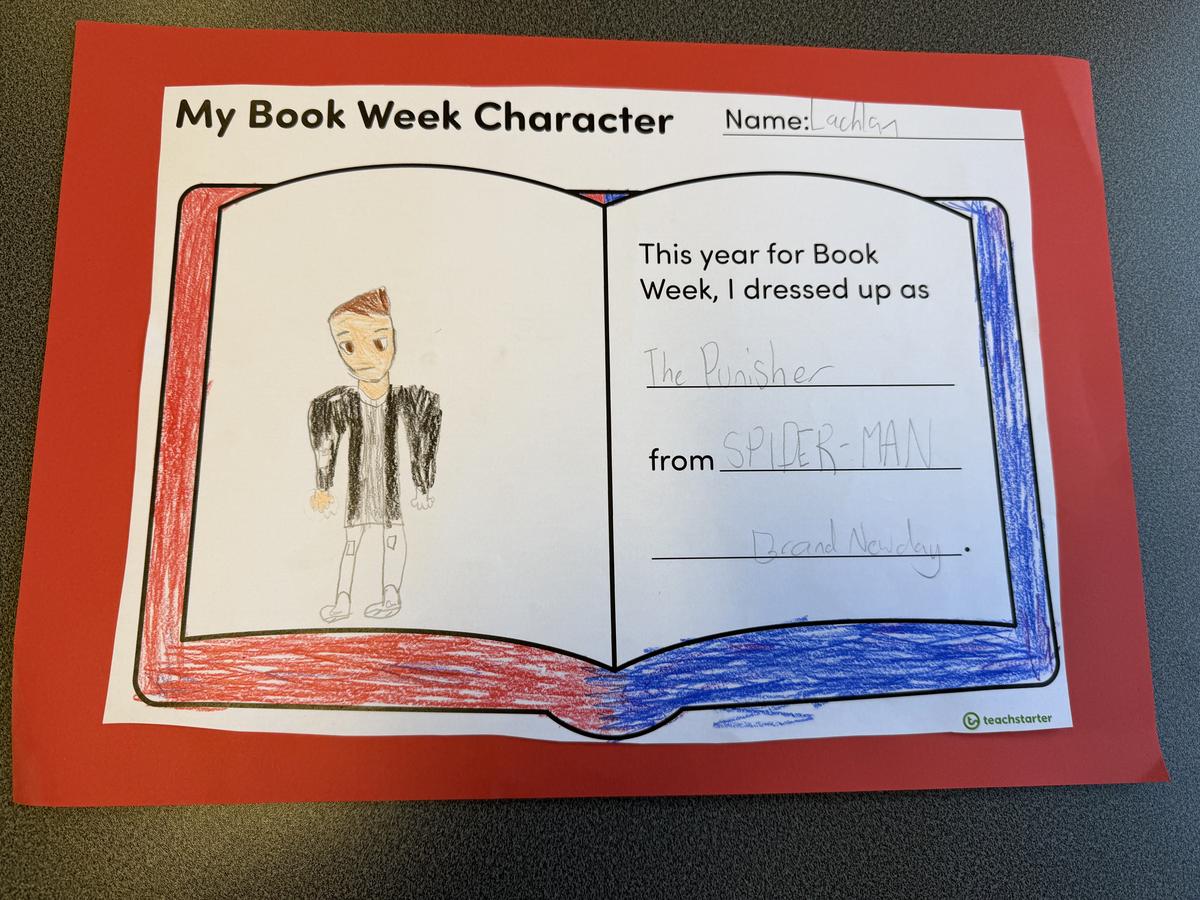 My Book Week Character
Name: Lachlan
This year for Book
Week, I dressed up as
The Punisher
from SPIDER-MAN
Brand Newday.
teachstarter